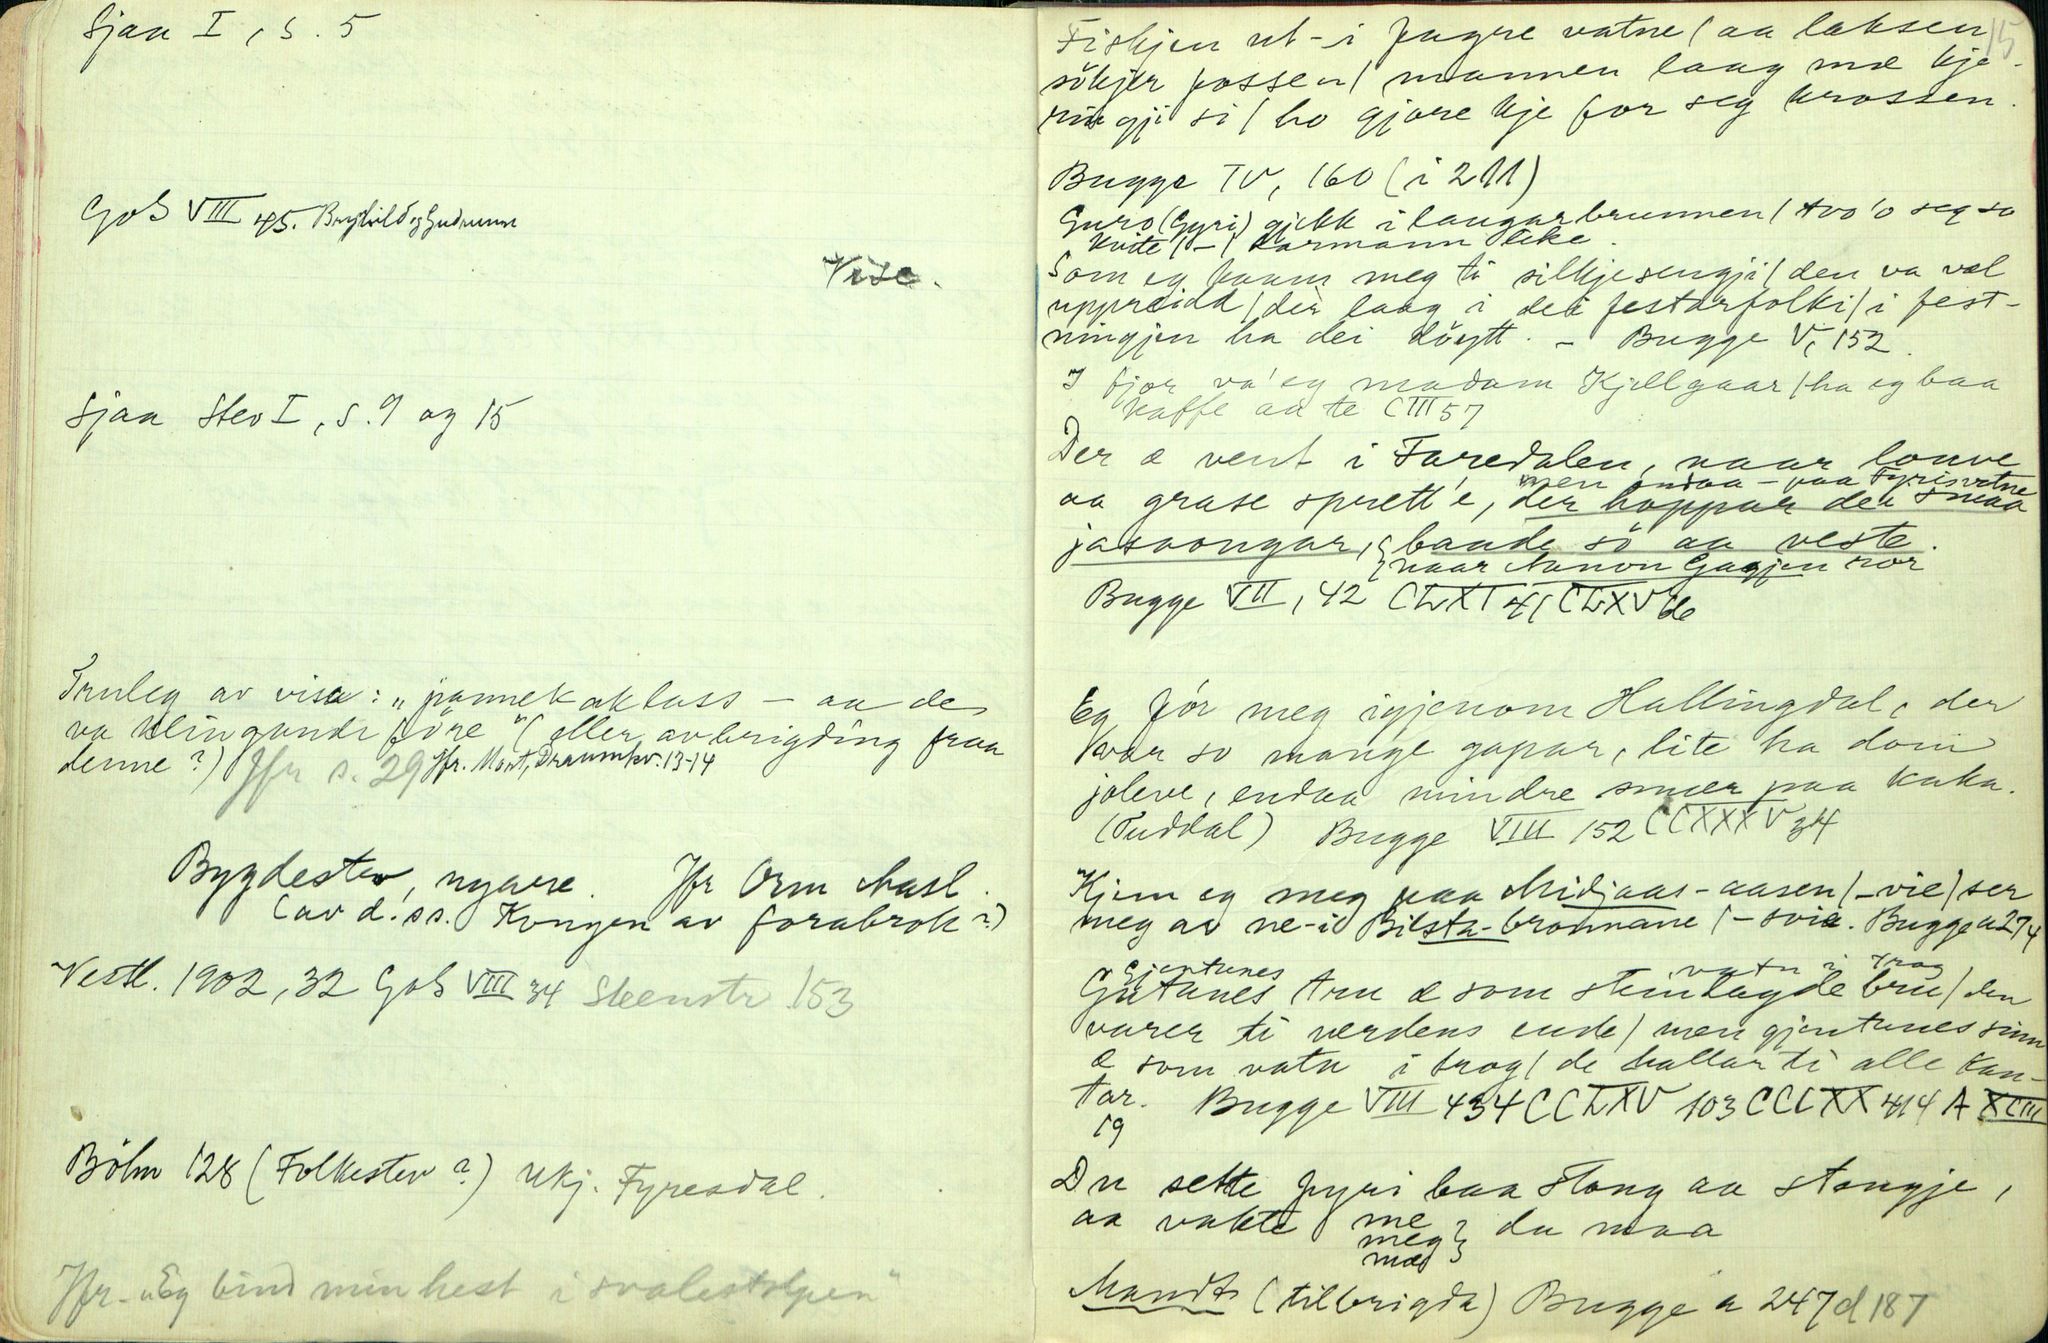 Sjaa I, s. 5
GoS VIII 45. Brynhild og Gudrunn
Vise.
Sjaa Stev I, s. 9 og 15
Truleg av visa: "pannekaklass – aa de
va klingande före" (eller avbrigding fraa
denne?) Jfr s. 29 Jfr. Mort, Draumkv. 13-14
Bygdestev, nyare. Jfr Orm Aasl.
(av d. s.s. Kongen av forabrok?)
Vestl. 1902, 32 GoS VIII 34 Steenstr 153
Böhn 128 (Folkestev?) Ukj. Fyresdal.
Jfr. "Eg bind min hest i svalestolpen"
15
Fiskjen ut-i fagre vatne / aa laksen
sökjer fossen / mannen laag mæ kje-
ringji si / ho gjore kje for seg krossen.
Bugge IV, 160 (i 211)
Guro (Gyri) gjekk i laugarbrunnen / tvo'o seg so
kvite / – / karmann like.
Som eg kaam meg ti silkjesengji / den va væl
uppreidd / der laag i dei festarfolki / i fest-
ningjen ha dei döytt. – Bugge V, 152.
I fjor va' eg madam Kjellgaar / ha eg baa
kaffe aa te CIII 57
Der æ vent i Faredalen, naar louve
aa grase sprett'e, der hoppar dei smaa
men endaa – paa Fyrisvatne
jasaongar, baade sö aa veste.
naar Aanon Gagjen ror
Bugge VII, 42 CLXI 41 CLXV 6c
Eg fór meg igjenom Hallingdal, der
var so mange gapar, lite ha dom
joleve, endaa mindre smær paa kaka.
(Tuddal) Bugge VIII 152 CCXXXV 34
Kjem eg meg paa Midjaas-aasen / -vie / ser
meg av ne-i Bilsta-bronnane / – svia. Bugge a 274
Gjentunes vatn i trog
Gutanes tru æ som steinlagde bru / den
varer ti verdens ende / men gjentunes sinn
æ som vatn i trog / de hallar ti alle kan-
tar. Bugge VIII 434 CCLXV 103 CCCXX 414 A XCIII
19
Du sette fyri baa stong aa stengje,
aa vakte me du maa
meg
mæ
Mandt (tilbrigda) Bugge a 247 d 187